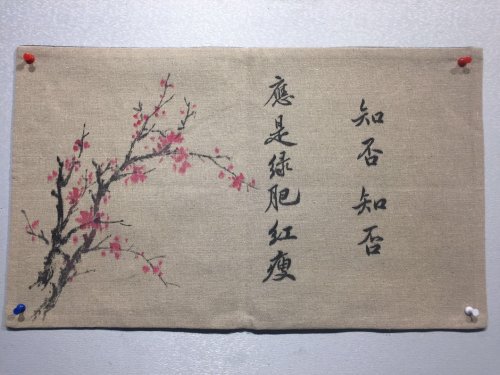 知否知否
應是绿肥红瘦